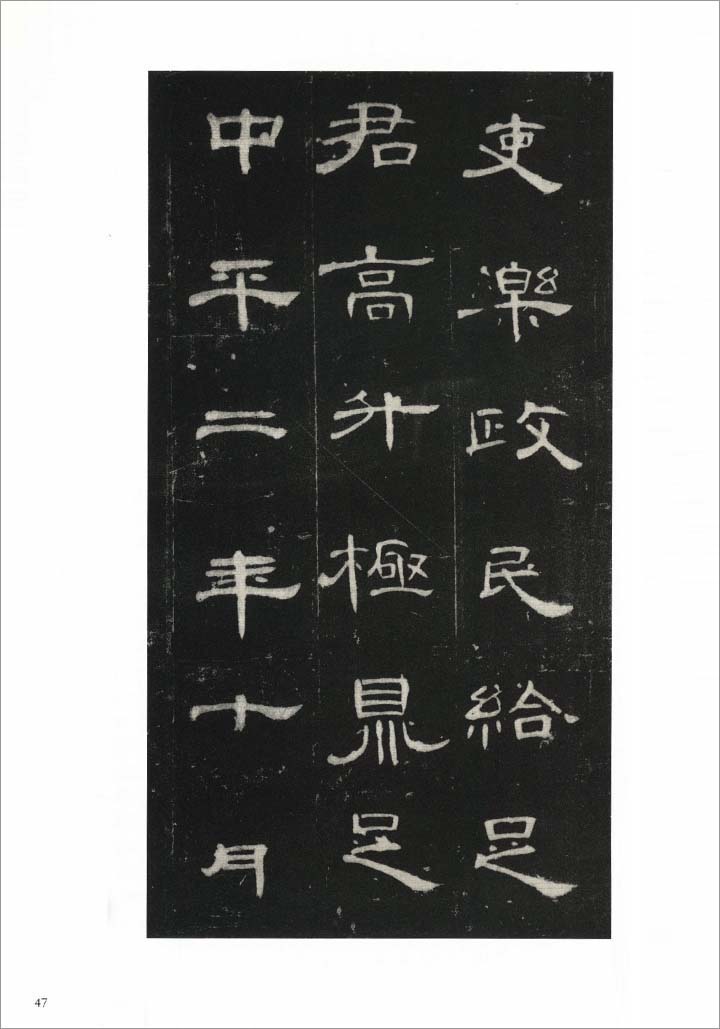 吏樂政民給足
君高升極鼎足
中平二年十月
47